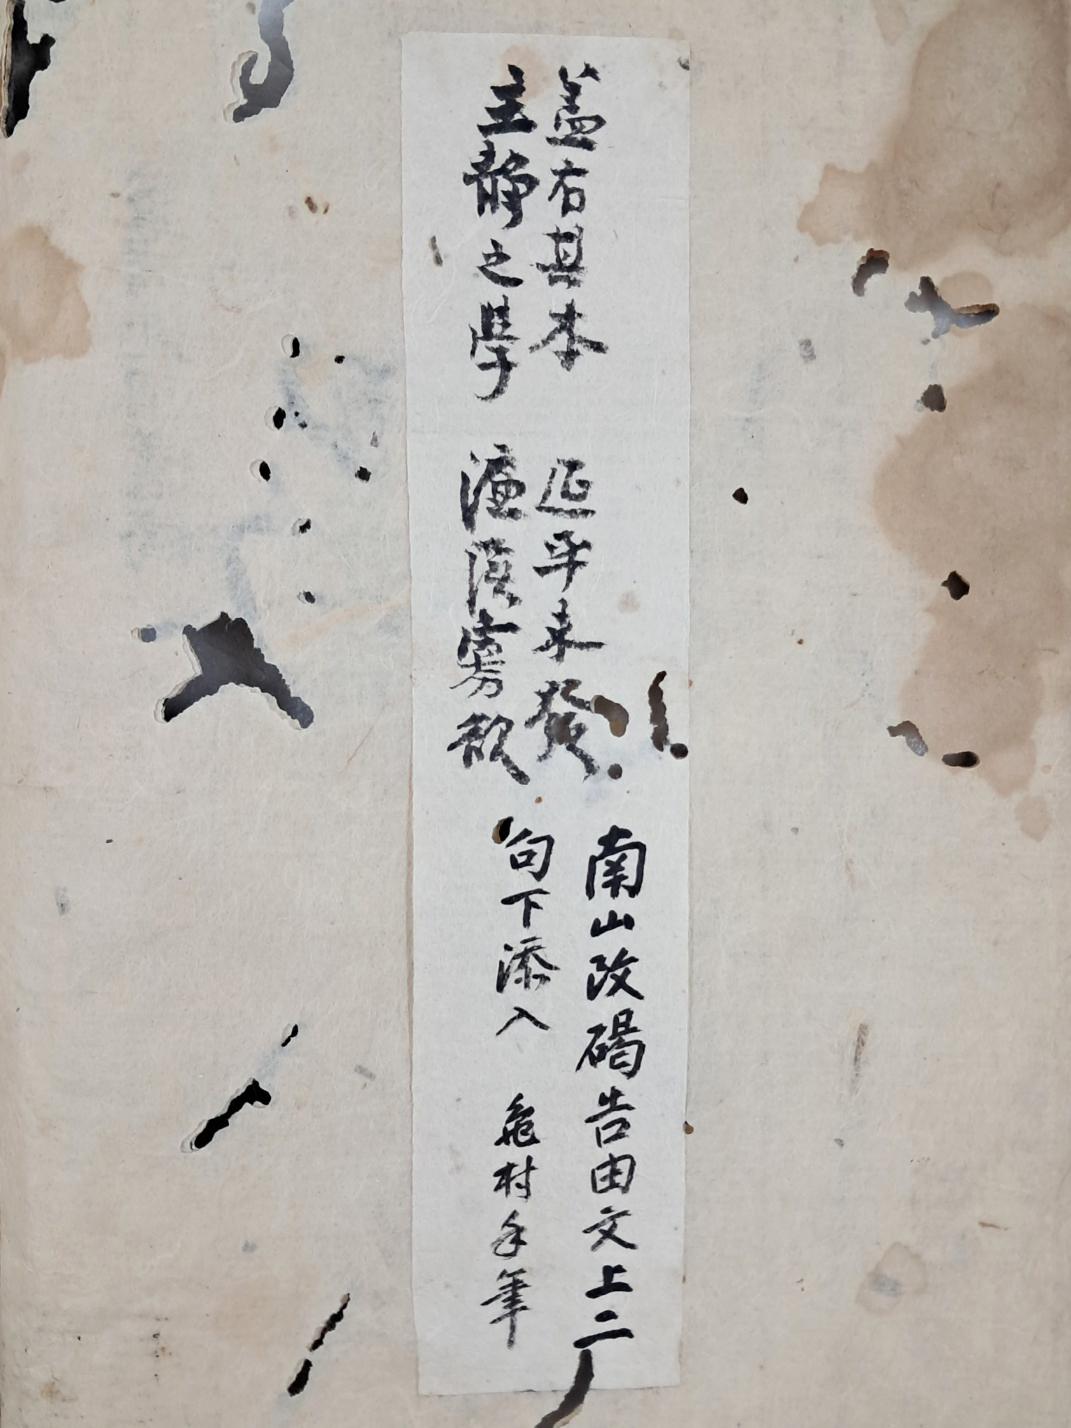 盖右其本 延平未發
主靜之學 濂溪寡欲
南山改碣告由文上二
句下添入 龜村手筆